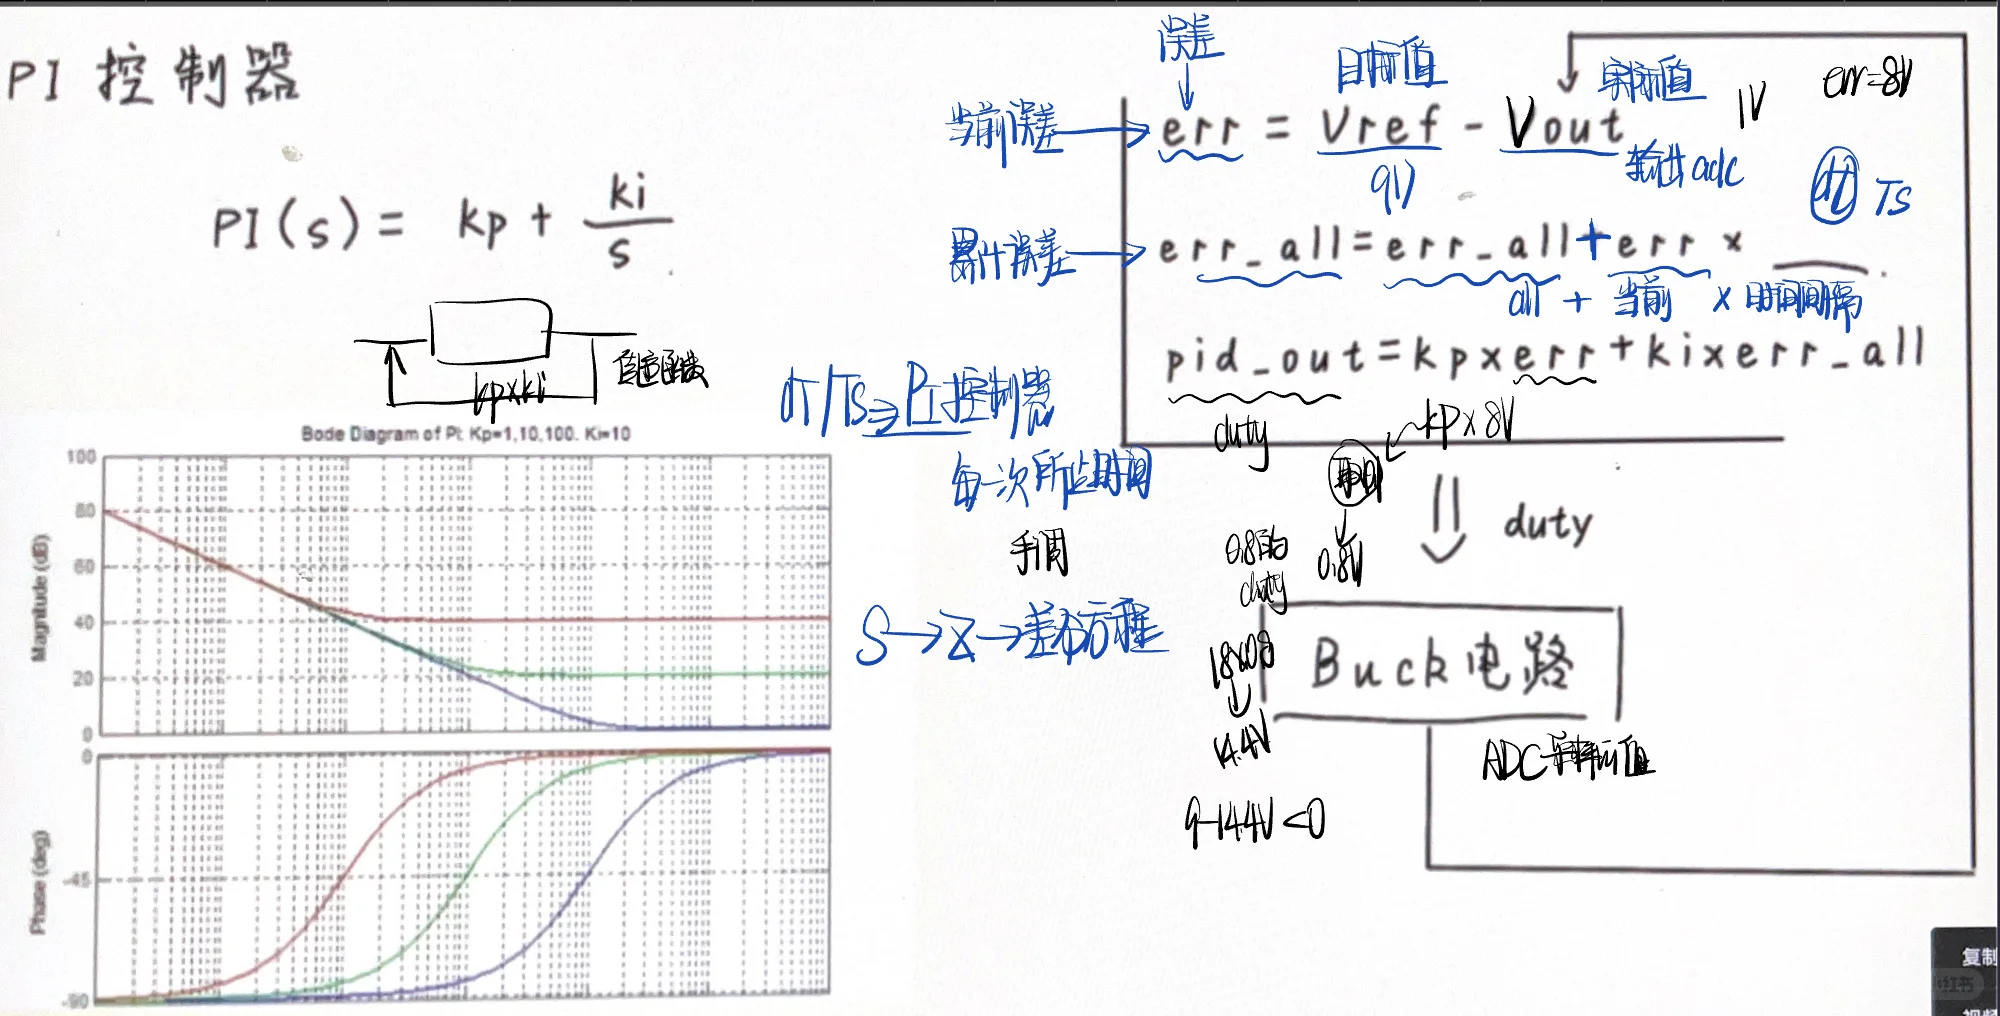 PI 控制器
PI(s) = kp + ki/s
kp×ki
Bode Diagram of PI: Kp=1,10,100. Ki=10
Magnitude (dB)
100
80
60
40
20
0
Phase (deg)
0
-45
-90
误差
目标值
实际值
1V
err=8V
当前误差
err = Vref - Vout
9V
输出adc
dt
Ts
累计误差
err_all=err_all+err ×
all + 当前 × 时间间隔
pid_out=kp×err+ki×err_all
duty
kp×8V
dT/Ts
PI控制器
每一次所占时间
手调
S→Z→差分方程
0.8V
0.8的
duty
duty
18×0.8
14.4V
9-14.4V<0
Buck电路
ADC采样
复制